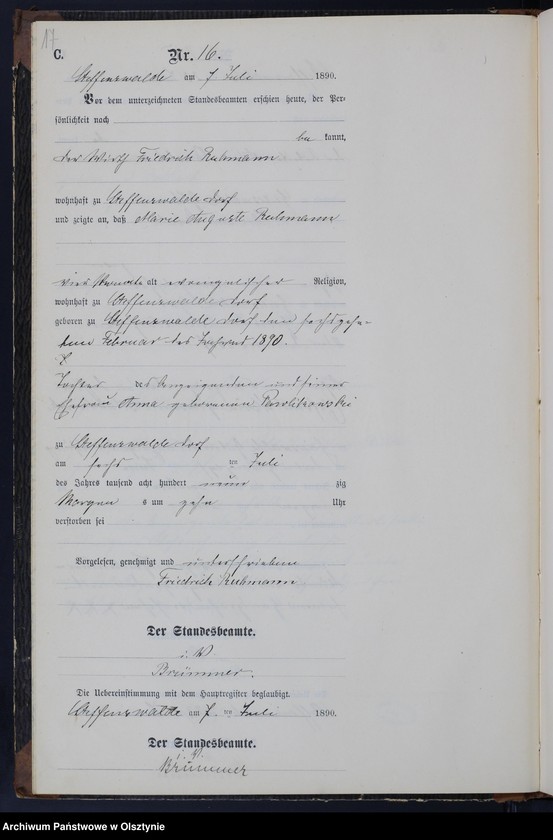 17
C. Nr. 16.
Steffenswalde am 7 Juli 1890.
Vor dem unterzeichneten Standesbeamten erschien heute, der Per-
sönlichkeit nach
be kannt,
der Wirth Friedrich Ruhmann
wohnhaft zu Steffenswalde Dorf
und zeigte an, daß Marie Auguste Ruhmann
vier Monate alt evangelischer Religion,
wohnhaft zu Steffenswalde Dorf
geboren zu Steffenswalde Dorf den sechszehn-
ten Februar des Jahres 1890.
Tochter des Anzeigenden und seiner
Ehefrau Anna geborenen
zu Steffenswalde Dorf
am sechs ten Juli
des Jahres tausend acht hundert neun zig
Morgen s um zehn Uhr
verstorben sei
Vorgelesen, genehmigt und unterschrieben
Friedrich Ruhmann
Der Standesbeamte.
i. V.
Brümmer.
Die Uebereinstimmung mit dem Hauptregister beglaubigt.
Steffenswalde am 7. ten Juli 1890.
Der Standesbeamte.
i. V.
Brümmer
Archiwum Państwowe w Olsztynie